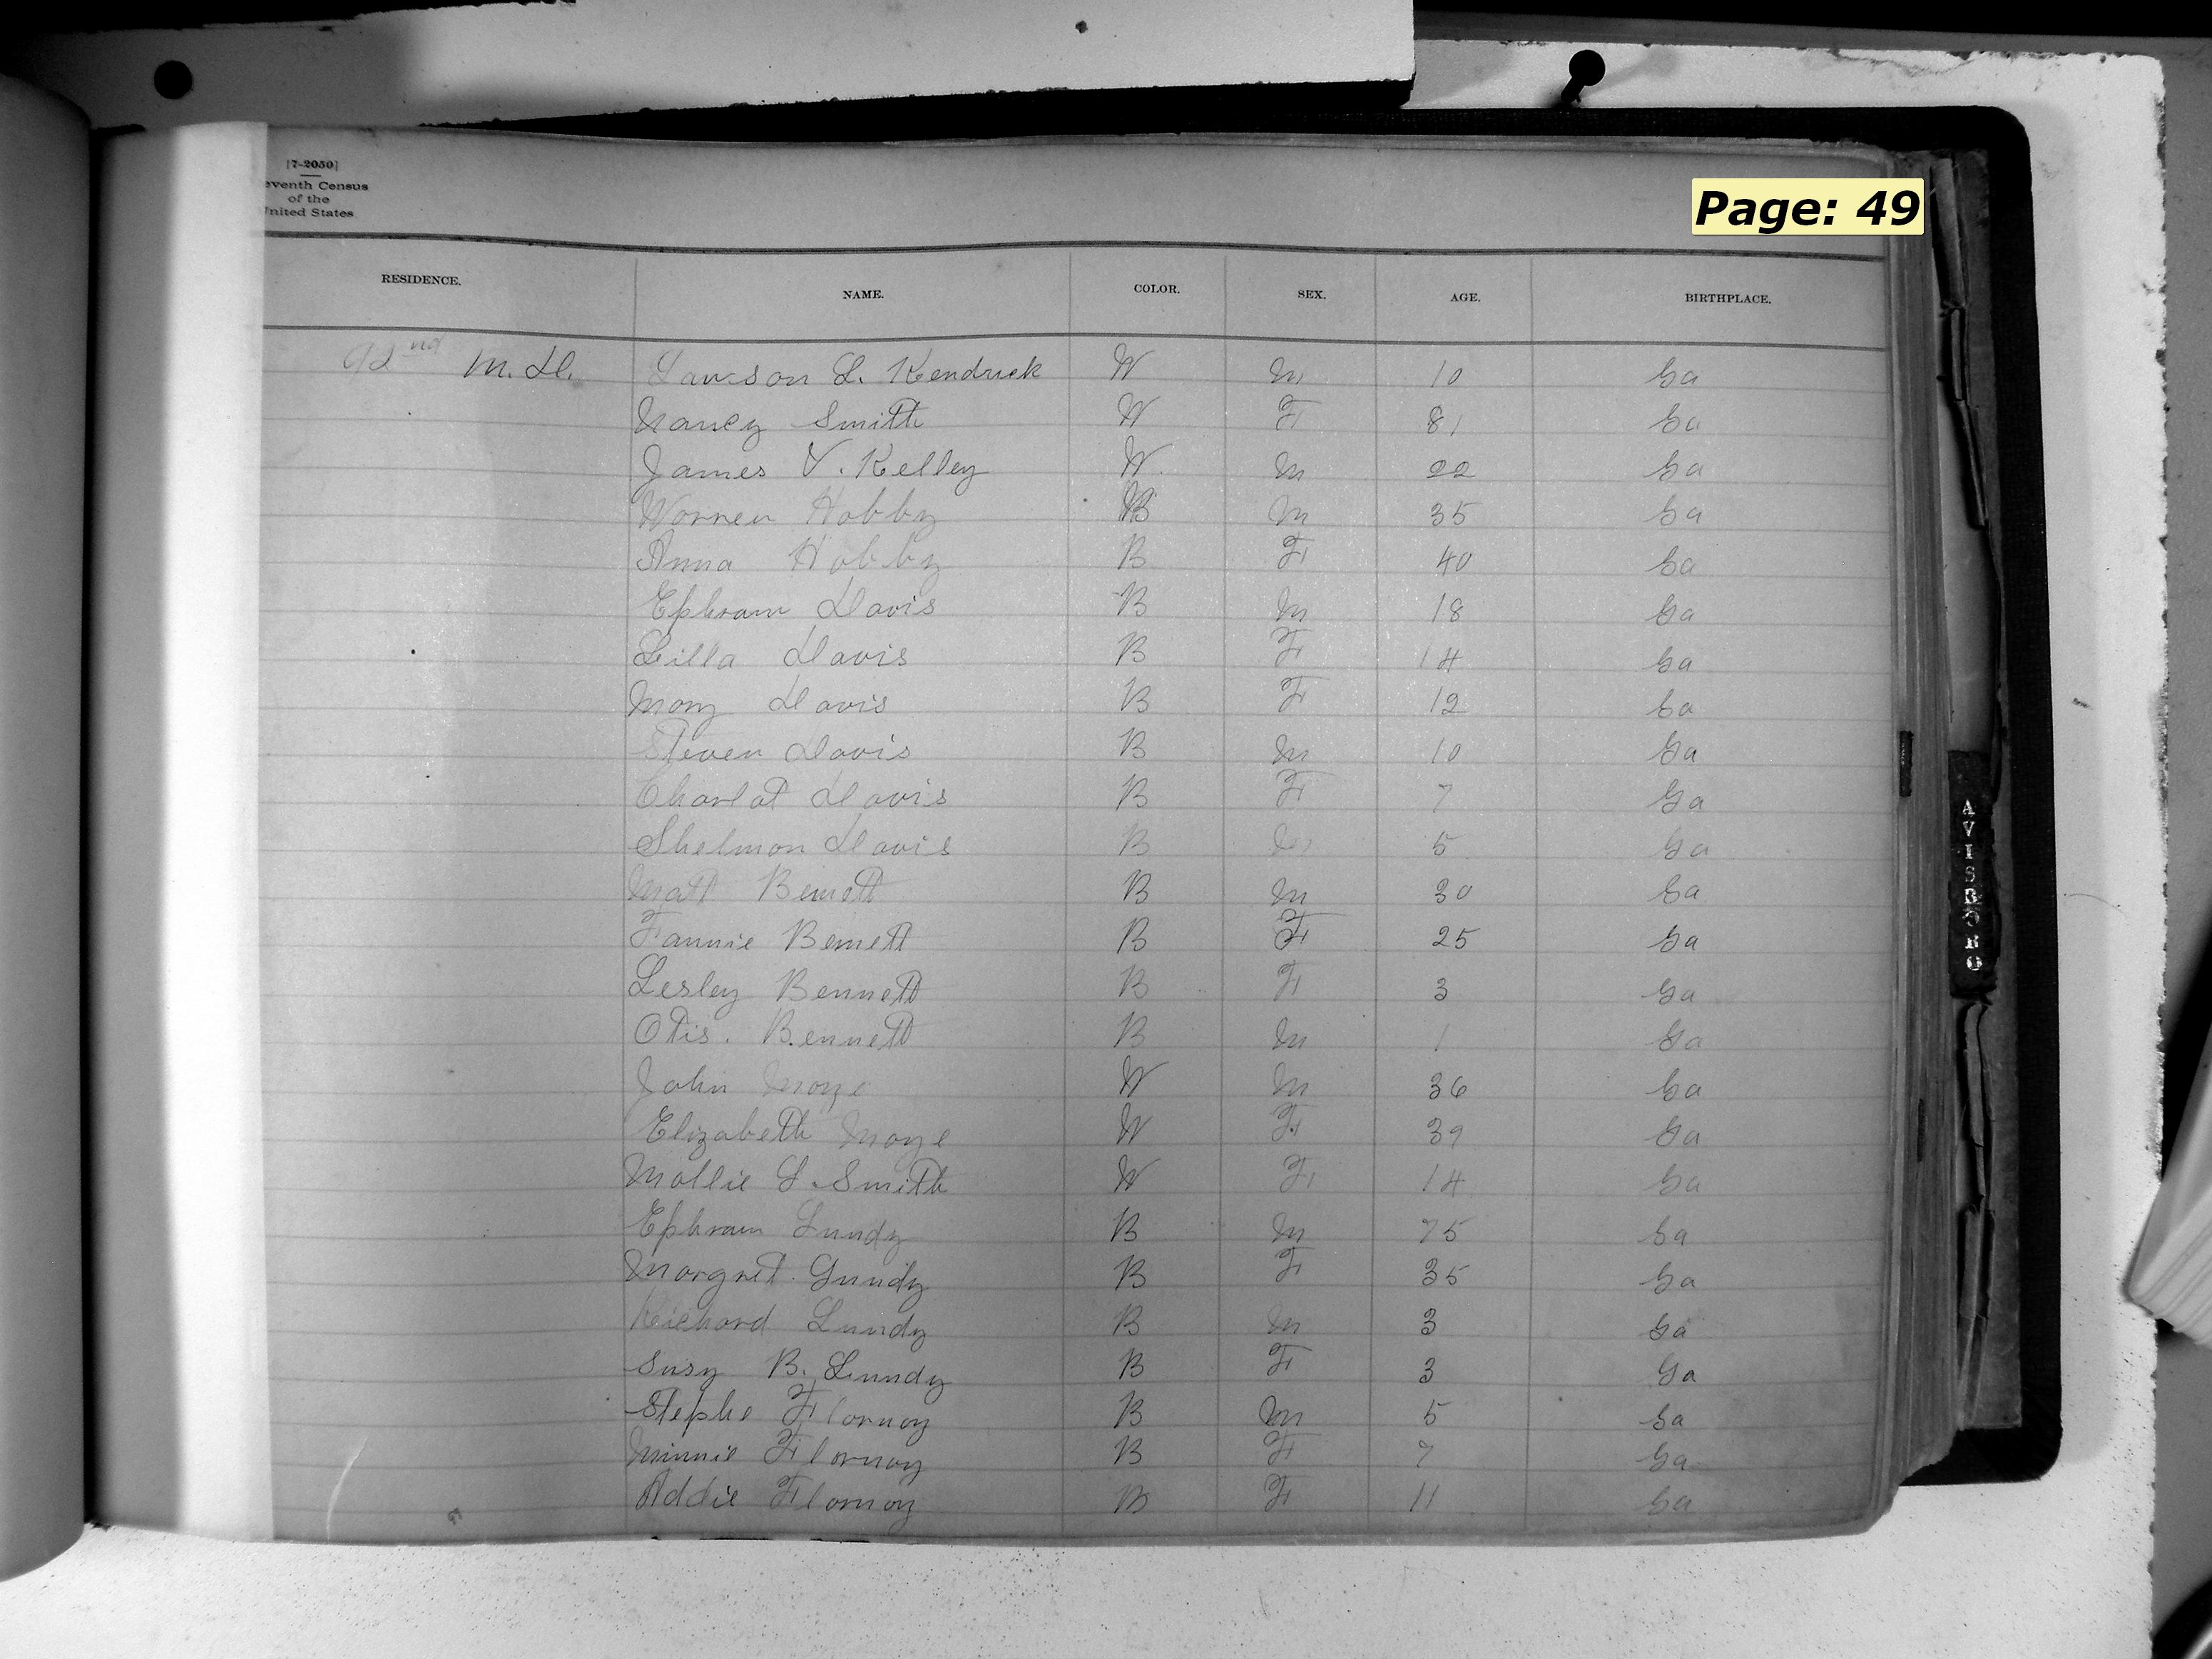 [7-2050]
eventh Census
of the
United States
Page: 49
RESIDENCE. NAME. COLOR. SEX. AGE. BIRTHPLACE.
92nd M. D. Lawson L. Kendrick W M 10 Ga
Nancy Smith W F 81 Ga
James V. Kelley W. M 22 Ga
Warren Hobby B M 35 Ga
Anna Hobby B F 40 Ga
Ephram Davis B M 18 Ga
Lilla Davis B F 14 Ga
Mary Davis B F 12 Ga
Steven Davis B M 10 Ga
Charlot Davis B F 7 Ga
Shelmon Davis B M 5 Ga
Matt Bennett B M 30 Ga
Fannie Bennett B F 25 Ga
Lesley Bennett B F 3 Ga
Otis. Bennett B M 1 Ga
John Moye W M 36 Ga
Elizabeth Moye W F 39 Ga
Mollie L. Smith W F 14 Ga
Ephram Lundy B M 75 Ga
Margret Lundy B F 35 Ga
Richard Lundy B M 3 Ga
Susy B. Lundy B F 3 Ga
Stephe Flornoy B M 5 Ga
Minnie Flornoy B F 7 Ga
Addie Flornoy B F 11 Ga
AVISBORO